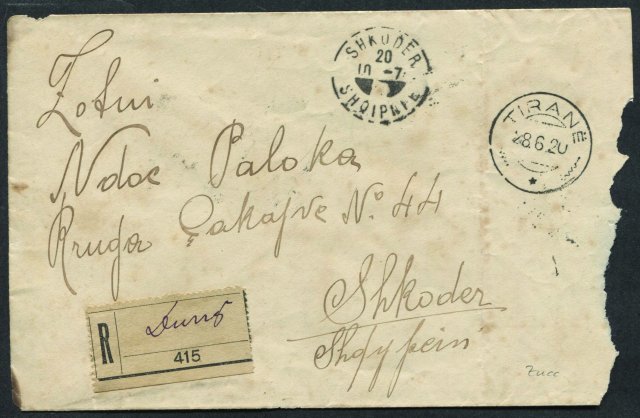 SHKODER
20
10-7
SHQIPNIE
TIRANË
28.6.20
Zotni
Ndoc Paloka
Rruga Çakajve No. 44
Shkoder
Shqypein
R
415